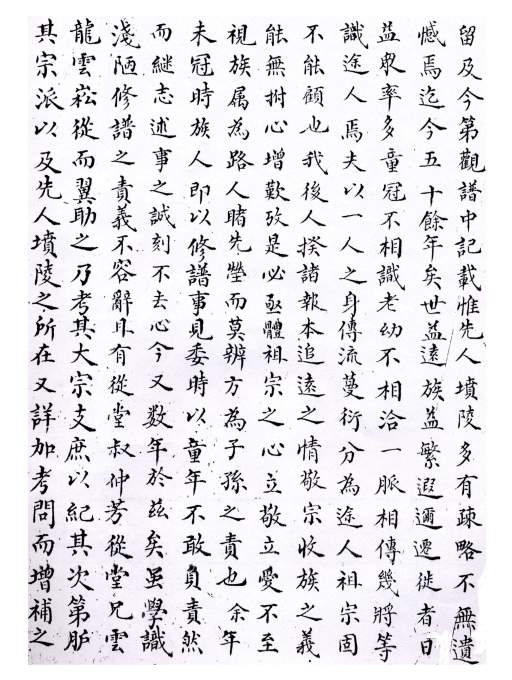 留及今第觀譜中記載惟先人墳陵多有疎略不無遺
憾焉迄今五十餘年矣世益遠族益繁遐邇遷徙者日
益衆率多童冠不相識老幼不相洽一脈相傳幾將等
識途人焉夫以一人之身傳流蔓衍分為途人祖宗固
不能顧也我後人揆諸報本追遠之情敬宗收族之義
能無拊心增歎攷是必亟體祖宗之心立敬立愛不至
視族属為路人睹先塋而莫辨方為子孫之責也余年
未冠時族人即以修譜事見委時以童年不敢負責然
而継志述事之誠刻不去心今又数年於茲矣虽學識
淺陋修譜之責義不容辭且有從堂叔仲芳從堂兄雲
龍雲崧從而翼助之乃考其大宗支庶以紀其次第胪
其宗派以及先人墳陵之所在又詳加考問而增補之